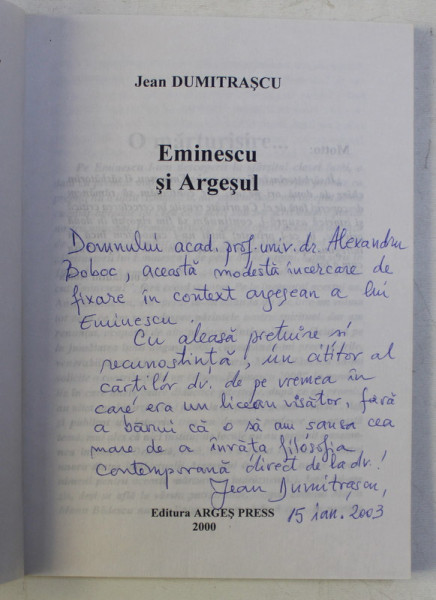 Jean DUMITRAŞCU
Motto:
O mărturisire...
Eminescu
şi Argeşul
Domnului acad. prof. univ. dr. Alexandru
Boboc, această modestă încercare de
fixare în context argeşean a lui
Eminescu.
Cu aleasă preţuire şi
recunoştinţă, un cititor al
cărţilor dv. de pe vremea în
care era un licean visător, fără
a bănui că o să am şansa cea
mare de a învăţa filosofia
contemporană direct de la dv.!
Jean Dumitraşcu,
15 ian. 2003
Editura ARGEŞ PRESS
2000